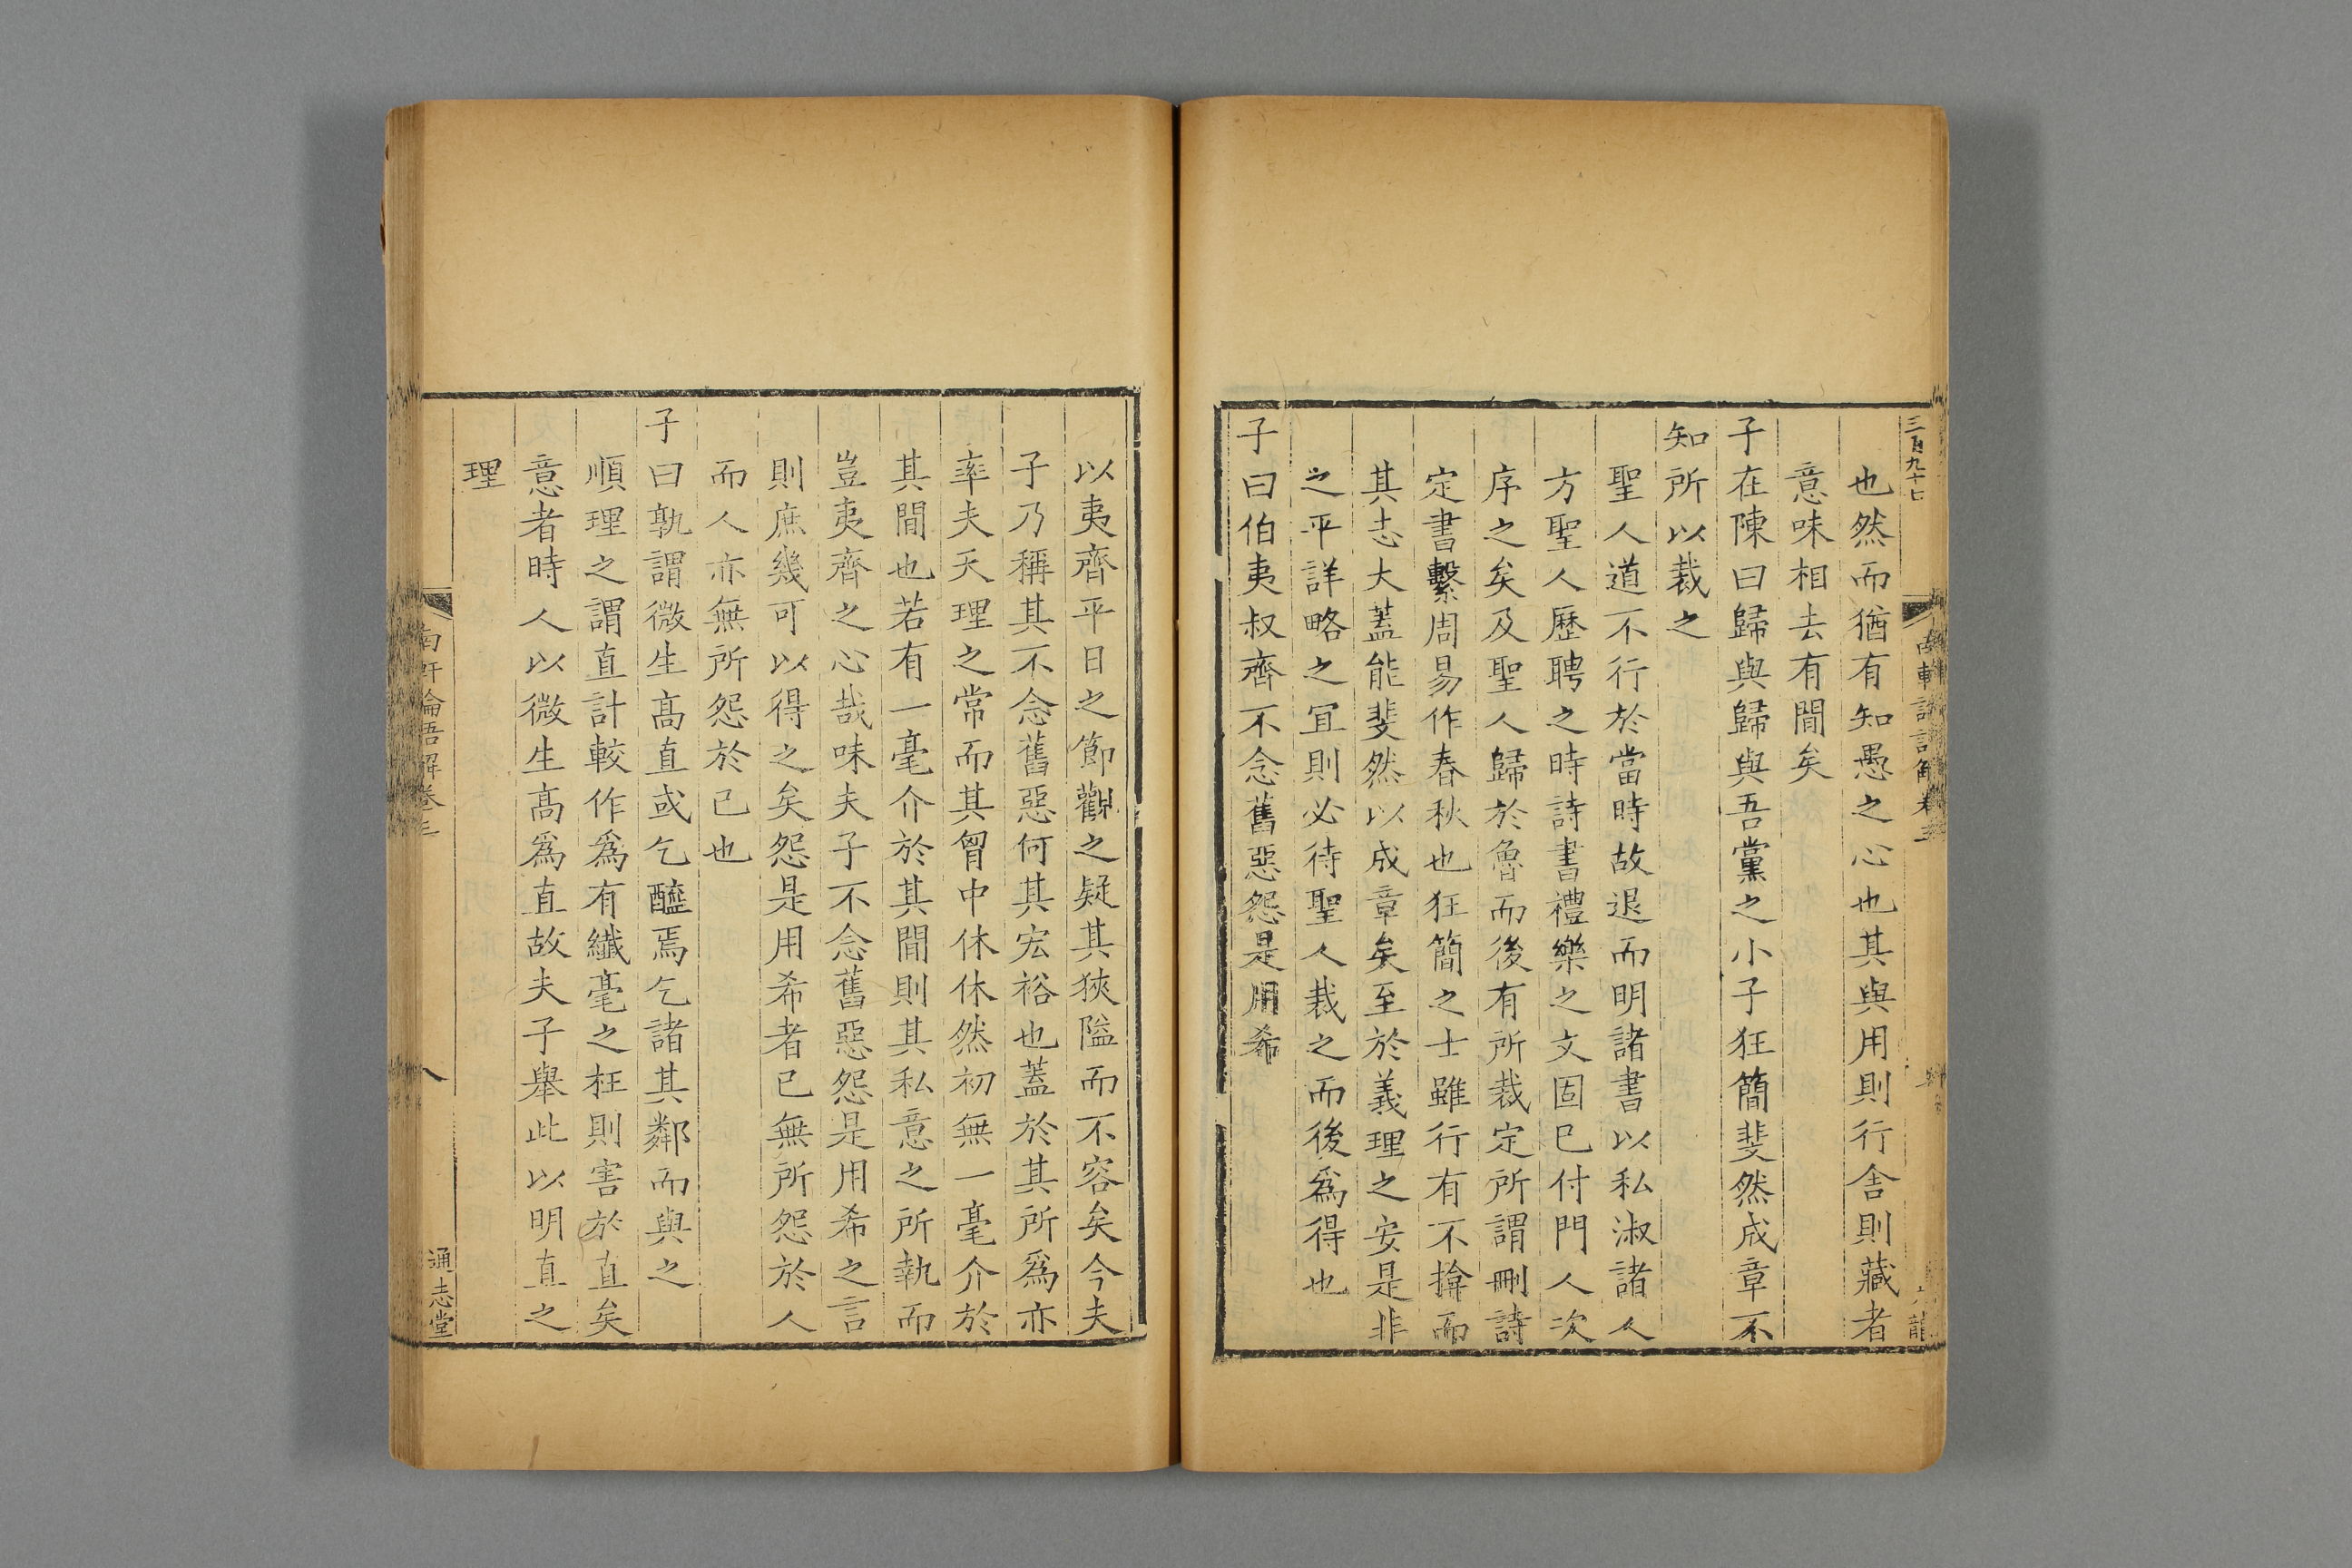 三百九十七
也然而猶有知愚之心也其與用則行舍則藏者
意味相去有間矣
子在陳曰歸與歸與吾黨之小子狂簡斐然成章不
知所以裁之
聖人道不行於當時故退而明諸書以私淑諸人
方聖人歷聘之時詩書禮樂之文固已付門人次
序之矣及聖人歸於魯而後有所裁定所謂刪詩
定書繫周易作春秋也狂簡之士雖行有不揜而
其志大蓋能斐然以成章矣至於義理之安是非
之平詳略之冝則必待聖人裁之而後爲得也
子曰伯夷叔齊不念舊惡怨是用希
以夷齊平日之節觀之疑其狹隘而不容矣今夫
子乃稱其不念舊惡何其宏裕也蓋於其所爲亦
率夫天理之常而其胷中休休然初無一毫介於
其間也若有一毫介於其間則其私意之所執而
豈夷齊之心哉味夫子不念舊惡怨是用希之言
則庶幾可以得之矣怨是用希者已無所怨於人
而人亦無所怨於已也
子曰孰謂微生髙直或乞醯焉乞諸其鄰而與之
順理之謂直計較作爲有纖毫之枉則害於直矣
意者時人以微生髙爲直故夫子舉此以明直之
理
南軒論語解卷三
八
通志堂